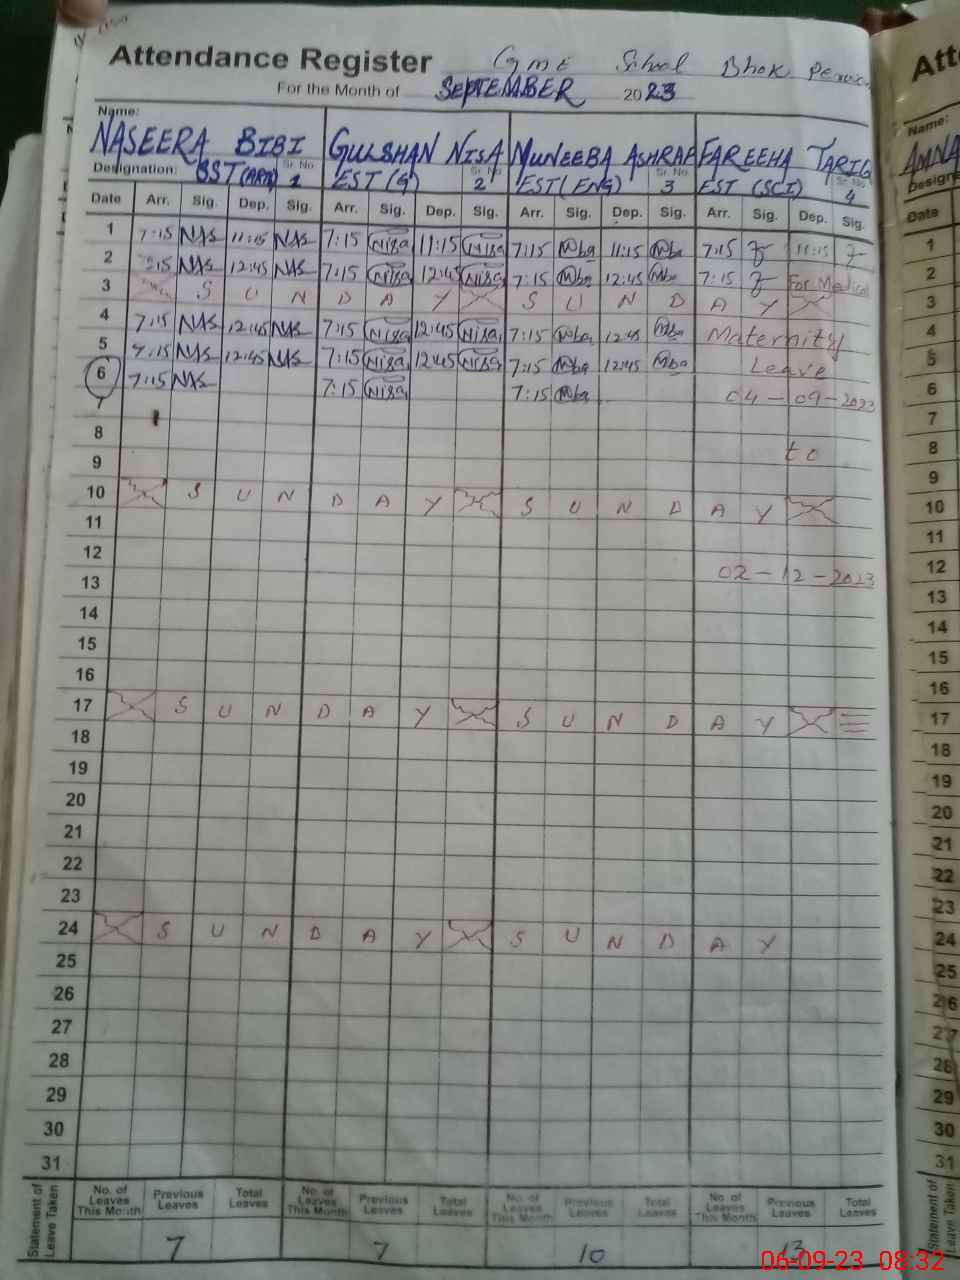 Attendance Register Gme School Bhok
For the Month of SEPTEMBER 2023
Name:
NASEERA BIBI GULSHAN NISA MUNEEBA ASHRAF FAREEHA TARIQ
Designation: SST (ARTS) Sr. No. 1 EST (G) Sr. No. 2 EST (ENG) Sr. No. 3 EST (SCI) Sr. No. 4
Date Arr. Sig. Dep. Sig. Arr. Sig. Dep. Sig. Arr. Sig. Dep. Sig. Arr. Sig. Dep. Sig.
1 7:15 NAS 11:15 NAS 7:15 Nisa 11:15 Nisa 7:15 Mba 11:15 Mba 7:15 11:15
2 7:15 NAS 12:45 NAS 7:15 Nisa 12:45 Nisa 7:15 Mba 12:45 Mba 7:15 For Medical
3 S U N D A Y S U N D A Y
4 7:15 NAS 12:45 NAS 7:15 Nisa 12:45 Nisa 7:15 Mba 12:45 Mba Maternity
5 7:15 NAS 12:45 NAS 7:15 Nisa 12:45 Nisa 7:15 Mba 12:45 Mba Leave
6 7:15 NAS 7:15 Nisa 7:15 Mba 04-09-2023
7
8 to
9
10 S U N D A Y S U N D A Y
11
12 02-12-2023
13
14
15
16
17 S U N D A Y S U N D A Y
18
19
20
21
22
23
24 S U N D A Y S U N D A Y
25
26
27
28
29
30
31
Statement of Leave Taken
No. of Leaves This Month Previous Leaves Total Leaves No. of Leaves This Month Previous Leaves Total Leaves No. of Leaves This Month Previous Leaves Total Leaves No. of Leaves This Month Previous Leaves Total Leaves
7 7 10 13
Att
Name:
AMNA
Design
Date
1
2
3
4
5
6
7
8
9
10
11
12
13
14
15
16
17
18
19
20
21
22
23
24
25
26
27
28
29
30
31
Statement of Leave Taken
06-09-23 08:32